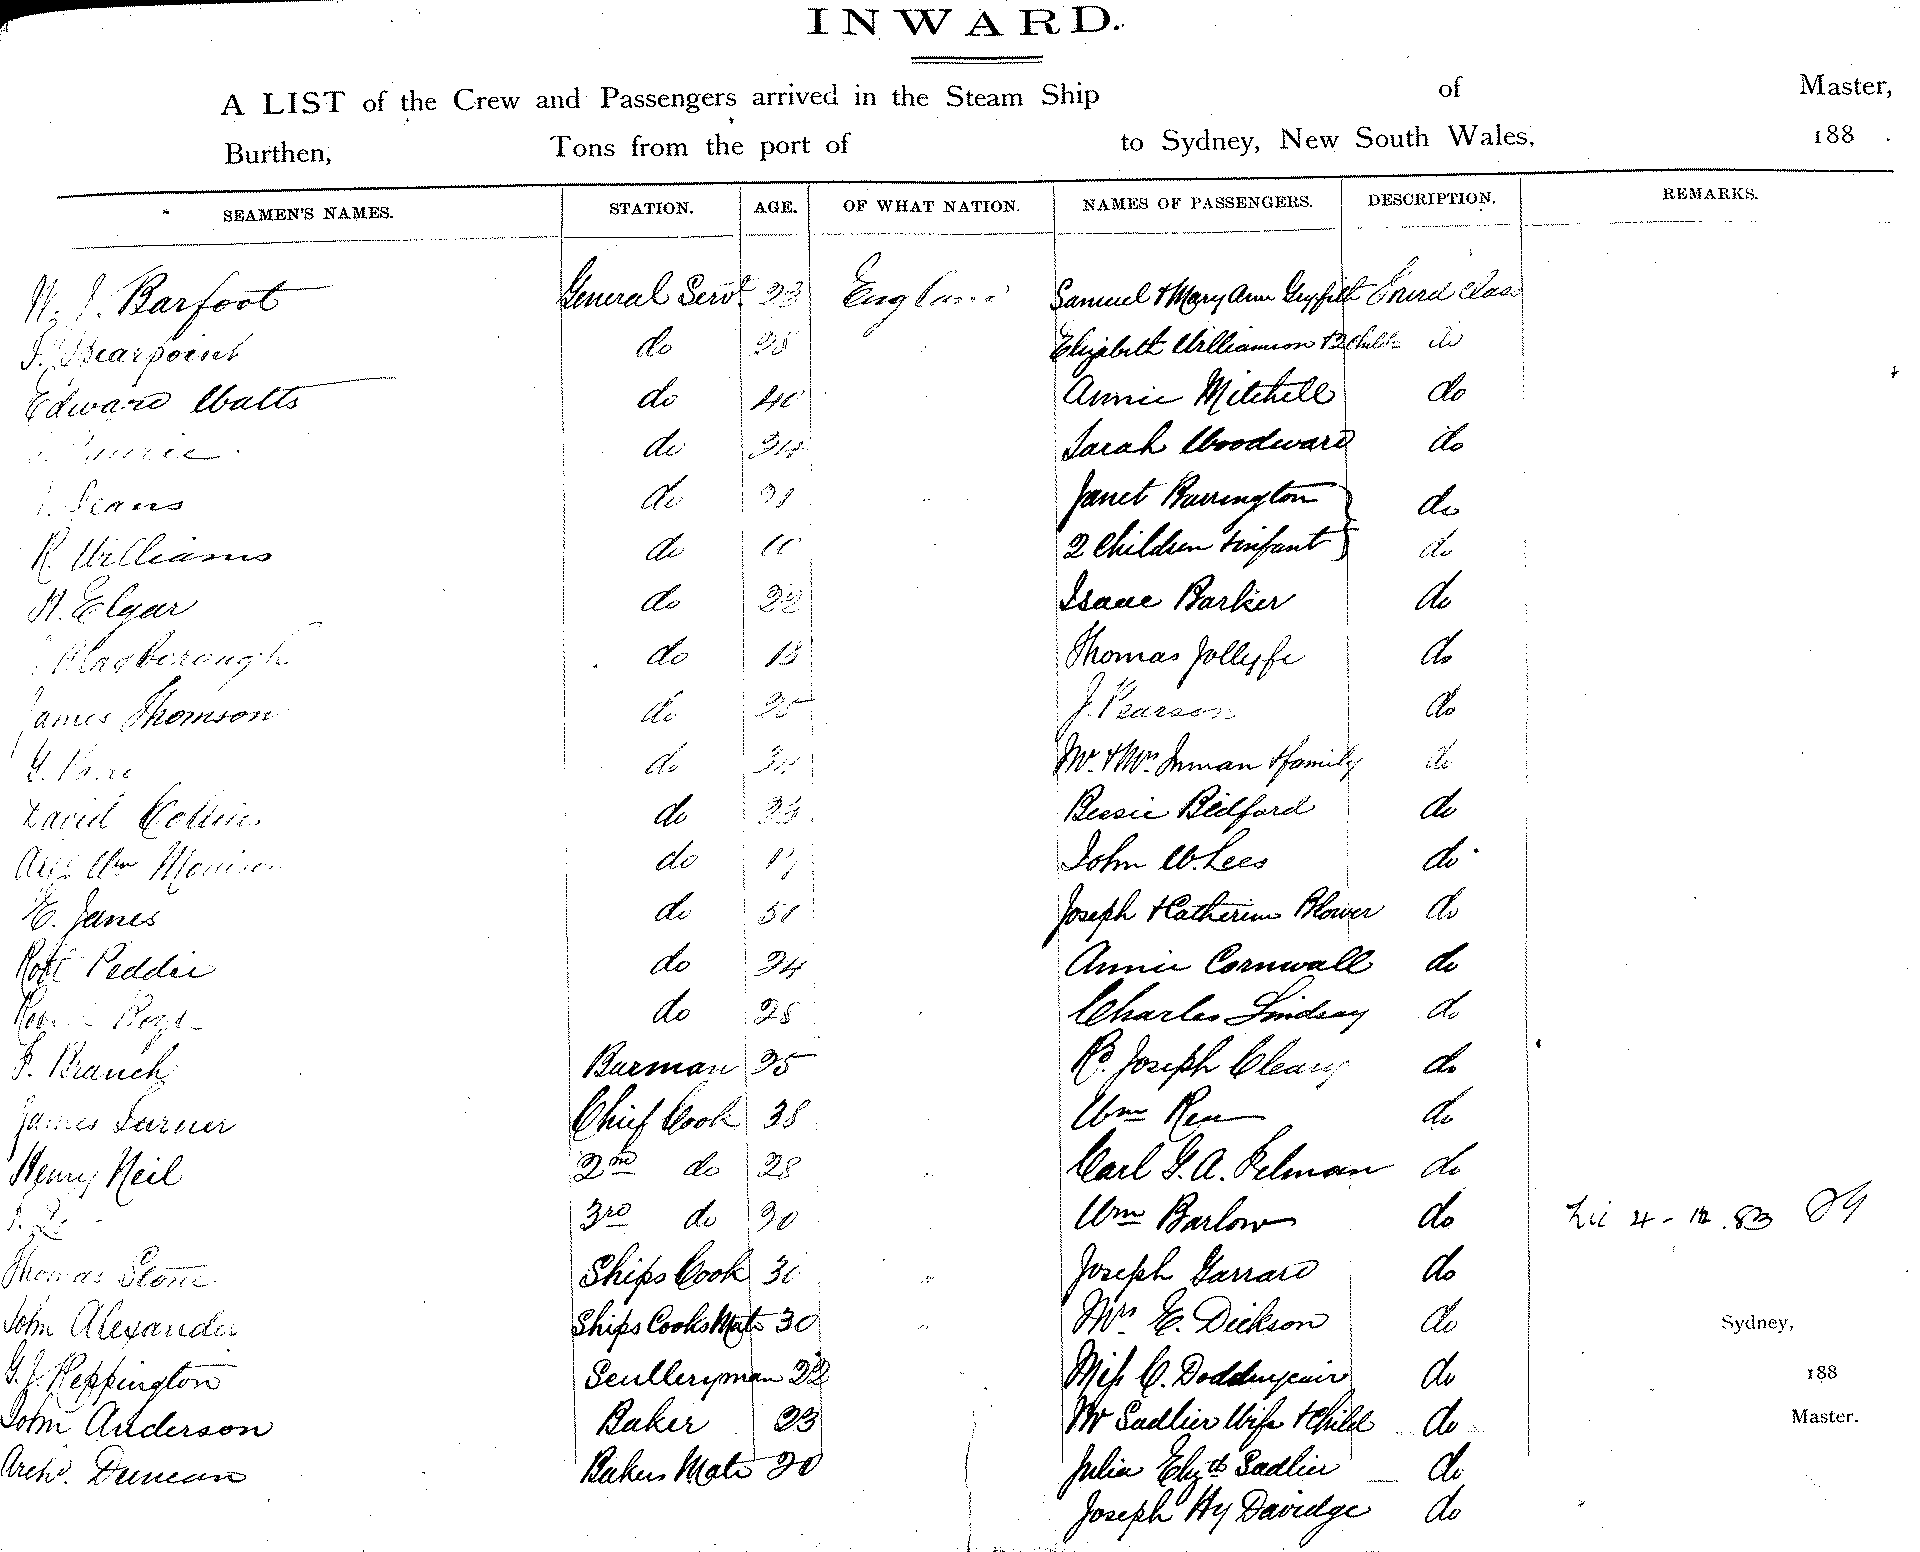 INWARD.
A LIST of the Crew and Passengers arrived in the Steam Ship of Master,
Burthen, Tons from the port of to Sydney, New South Wales, 188 .
SEAMEN'S NAMES. STATION. AGE. OF WHAT NATION. NAMES OF PASSENGERS. DESCRIPTION. REMARKS.
W. J. Barfoot General Servt 23 England Samuel & Mary Ann Class
Bearpoint do 28 Elizabeth Williamson & 2 Childn do
Edward Watts do 40 Annie Mitchell do
do Sarah Woodward do
do Janet Barrington do
R. Williams do 2 Children & infant do
H. Elgar do 22 Isaac Barker do
do 18 Thomas Jollyffe do
James Thomson do 25 J. Pearson do
do Mr. & Mrs. Inman & family do
David Collins do 23 Bessie Bedford do
Wm Morrison do John W. Lees do
E. Janes do Joseph & Catherine Blower do
Robt Peddie do 24 Annie Cornwall do
do 28 Charles Lindsay do
F. Branch Barman 25 Joseph Cleary do
James Turner Chief Cook 38 Wm do
Henry Neil 2nd do 28 Carl G. A. Felman do
3rd do 20 Wm Barlow do 83
Thomas Stone Ships Cook 30 Joseph Garrard do
John Alexander Ships Cooks Mate 30 Mrs. E. Dickson do Sydney,
G. J. Reppington Sculleryman 22 Miss C. do 188
John Anderson Baker 23 Mr Sadlier Wife & Child do Master.
Archd. Duncan Bakers Mate 20 Julia Elizth Sadlier do
Joseph Hy Davidge do